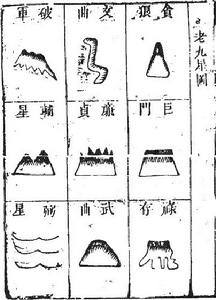 老九星圖
貪狼
文曲
破軍
巨門
廉貞
輔星
祿存
武曲
弼星